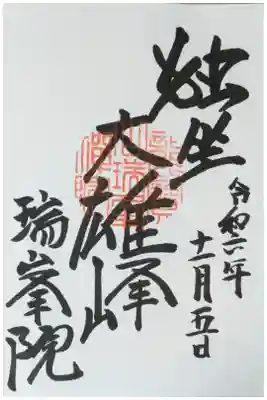 令和六年
十一月五日
独坐
大雄峰
瑞峯院